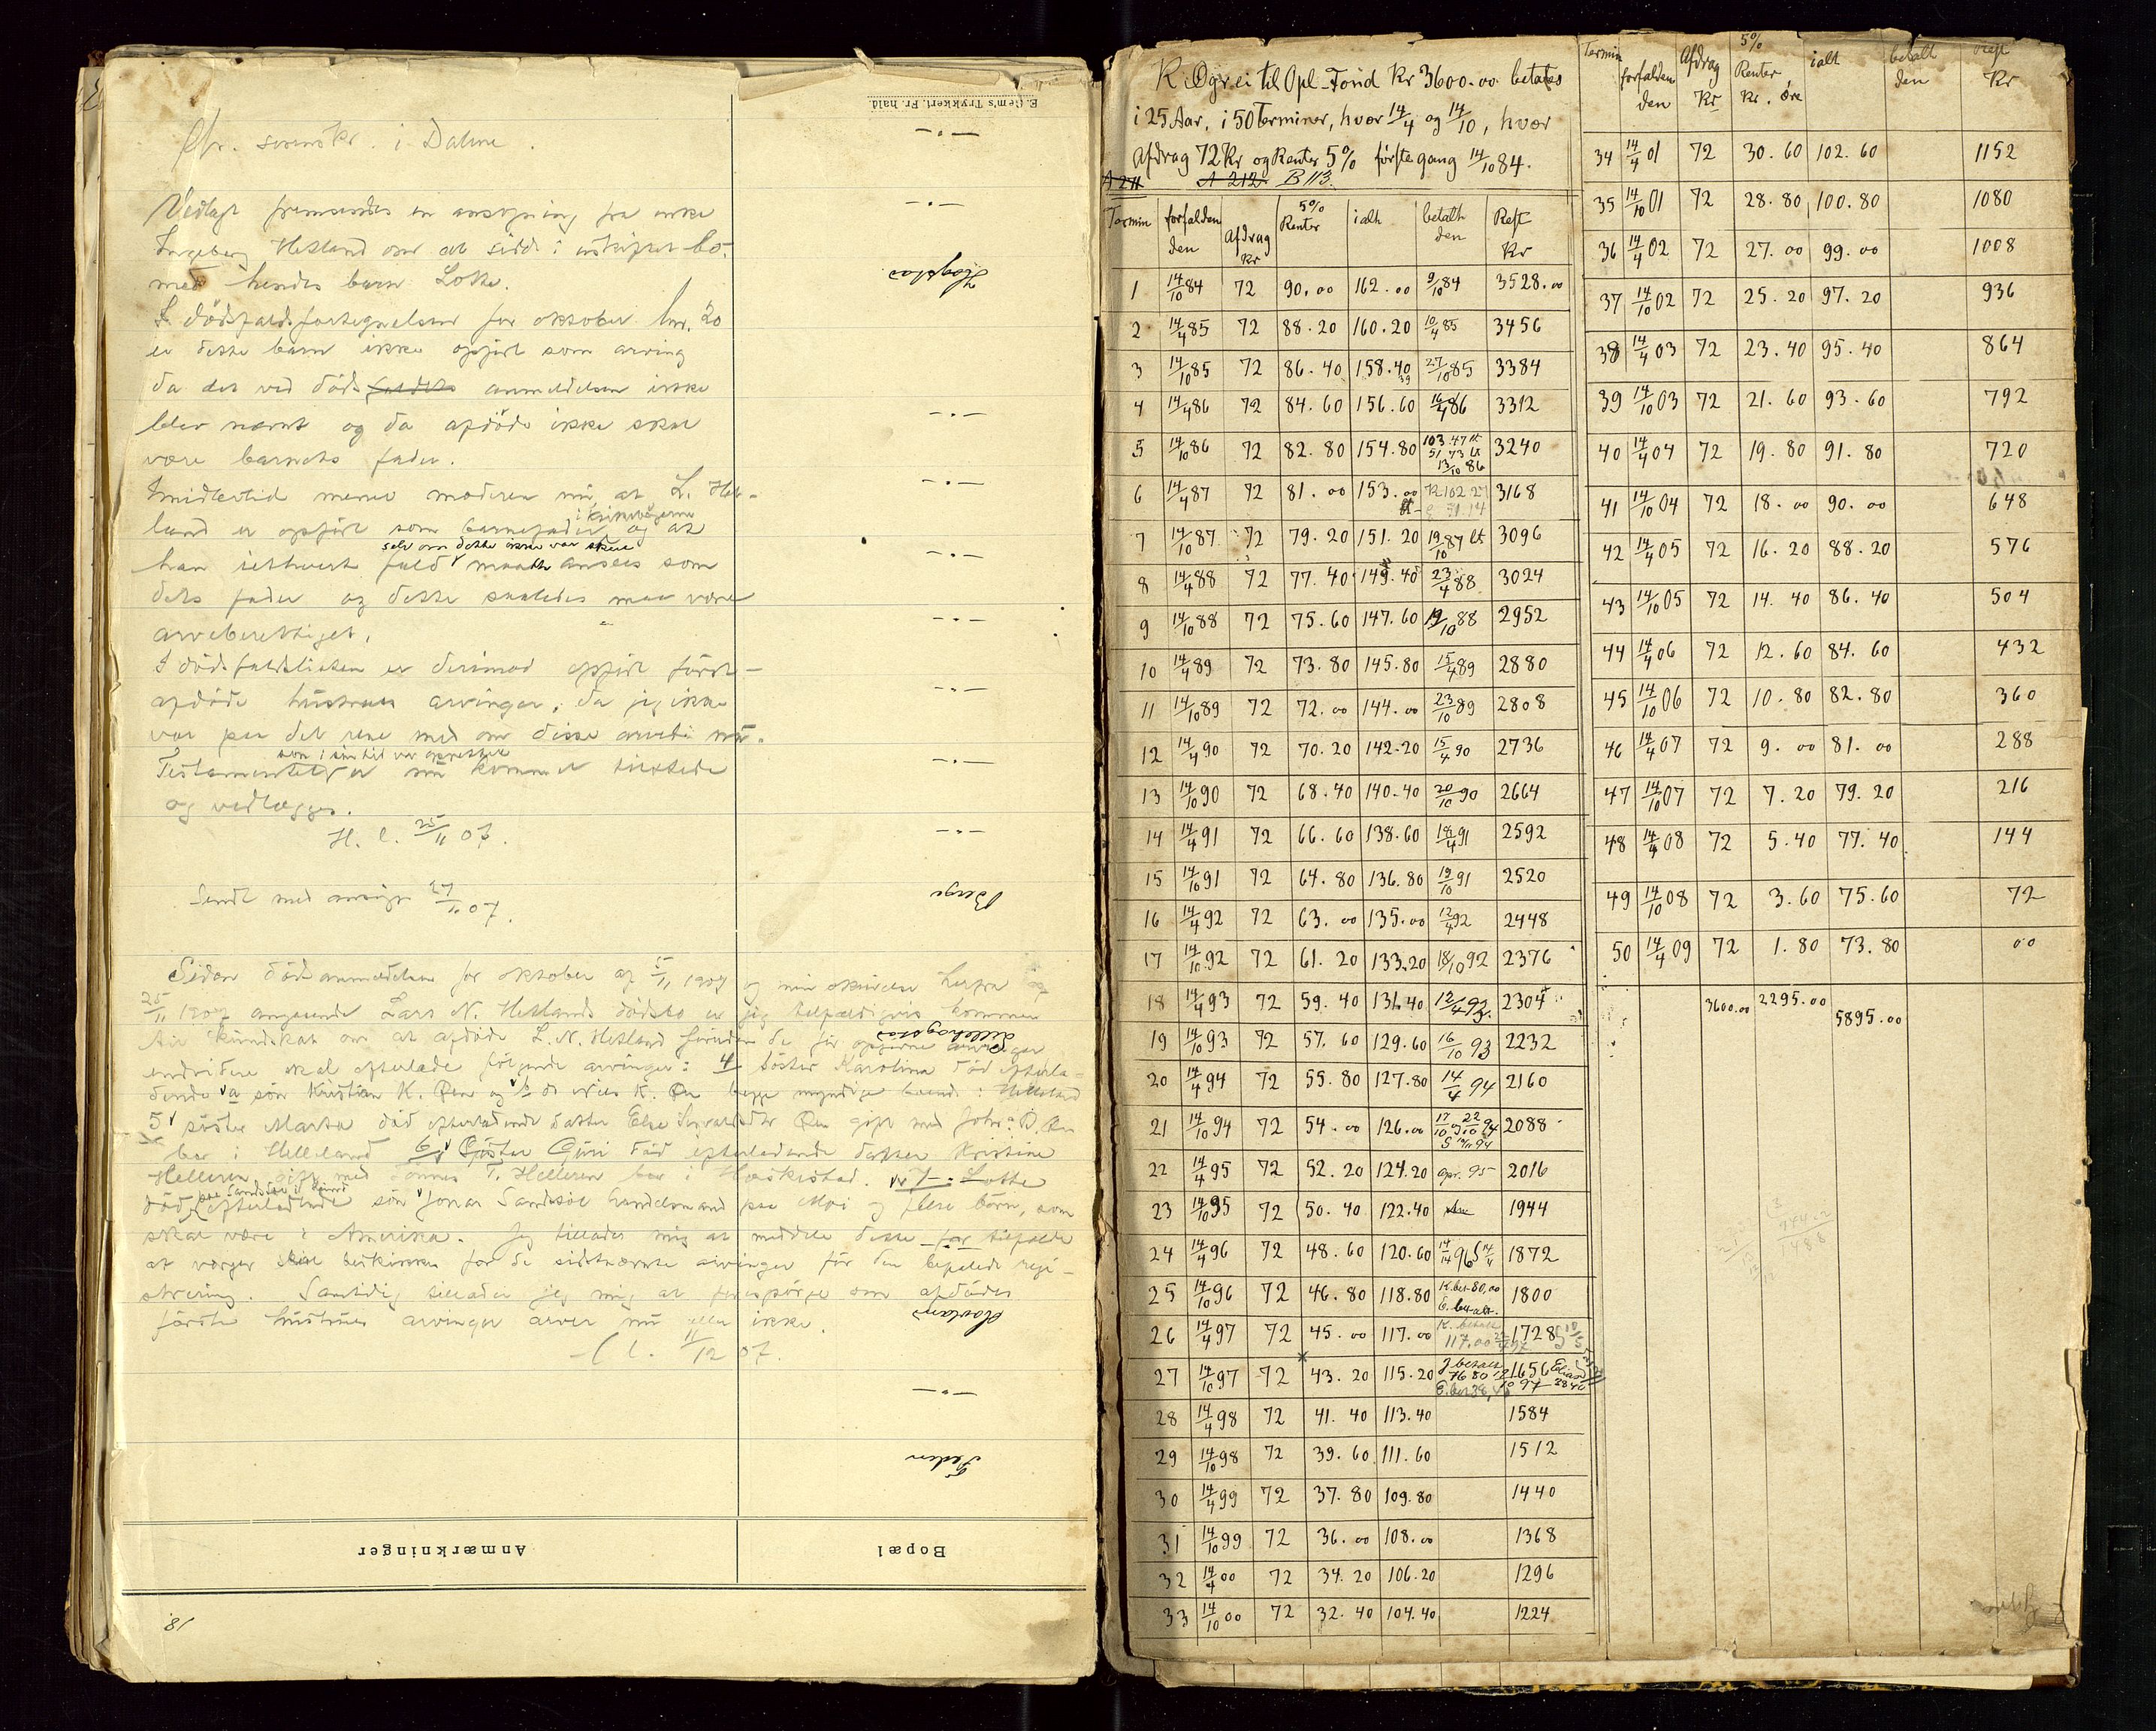 Vedlagt fremsendes en ansøgning fra enke
Ingeborg Hetland om at sidde i uskiftet bo
med hendes barn Lotte.
I dödsfaldsfortegnelsen for oktober lnr. 20
er dette barn ikke opfört som arving
da det ved döds faldet anmeldelsen ikke
blev nævnt og da afdöde ikke skal
være barnets fader.
Imidlertid mener moderen nu, at L. Het-
land er opfört som barnefader i kirkebögerne og at
han iethvert fald selv om dette ikke var skeet maatte ansees som
dets fader og dette saaledes maa være
arveberettiget.
I dödsfaldslisten er derimod opfört först-
afdöde hustrues arvinger, da jeg ikke
var paa det rene med om disse arvet nu.
Testamentet som i sin tid var oprettet er nu kommet tilstede
og vedlægges.
H. l. 25/11 07.
Sendt med 27/11 07.
Siden dödsanmeldelsen for oktober af 5/11 1907 og min skrivelse herfra af
25/11 1907 angaaende Lars N. Hetlands dödsbo er jeg tilfældigvis kommen
til kundskab om at afdöde L. N. Hetland foruden de før opførte arvinger
endvidere skal efterlade følgende arvinger: 4 söster Karolina död efterla-
dende a sön Kristian K. Ren og b do Nils K. Ren begge myndige boende i Helleland
5 söster Marta död efterladende datter Else Ren gift med John O. Ren
bor i Helleland 6 Söster Guri död efterladende datter Kristine
Helleren gift med Tönnes T. Helleren bor i Haskestad. 7 Lotte
död efterladende sön Jonas Sandsöl handelsmand paa Moi og flere börn, som
skal være i Amerika. Jeg tillader mig at meddele dette for tilfælde
at verger skal beskikkes for de sidstnævnte arvinger för den befalede regi-
strering. Samtidig tillader jeg mig at forespörge om afdödes
förste hustrues arvinger arver nu eller ikke.
l. 11/12 07.
E. Gjem's Trykkeri. Fr.hald.
—"—
—"—
Haagstad
—"—
—"—
—"—
—"—
—"—
—"—
—"—
Berge
—"—
Anmærkninger
Bopæl
18.
K. Øgrei til Opl-Fond Kr 3600.00 betales
i 25 Aar, i 50 Terminer, hver 14/4 og 14/10, hver
Afdrag 72 Kr og Renter 5% første gang 14/10 84.
A 211 A 212 B 113.
Termin forfalden den Afdrag Kr 5% Renter ialt betalt den Rest Kr
1 14/10 84 72 90.00 162.00 9/10 84 3528.00
2 14/4 85 72 88.20 160.20 10/4 85 3456
3 14/10 85 72 86.40 158.40 27/10 85 3384
4 14/4 86 72 84.60 156.60 16/4 86 3312
5 14/10 86 72 82.80 154.80 103.47 51 73 13/10 86 3240
6 14/4 87 72 81.00 153.00 K 102 27 51.14 3168
7 14/10 87 72 79.20 151.20 19/10 87 lt 3096
8 14/4 88 72 77.40 149.40 23/4 88 3024
9 14/10 88 72 75.60 147.60 19/10 88 2952
10 14/4 89 72 73.80 145.80 15/4 89 2880
11 14/10 89 72 72.00 144.00 23/10 89 2808
12 14/4 90 72 70.20 142.20 15/4 90 2736
13 14/10 90 72 68.40 140.40 20/10 90 2664
14 14/4 91 72 66.60 138.60 18/4 91 2592
15 14/10 91 72 64.80 136.80 19/10 91 2520
16 14/4 92 72 63.00 135.00 12/4 92 2448
17 14/10 92 72 61.20 133.20 18/10 92 2376
18 14/4 93 72 59.40 131.40 12/4 93. 2304
19 14/10 93 72 57.60 129.60 16/10 93 2232
20 14/4 94 72 55.80 127.80 14/4 94 2160
21 14/10 94 72 54.00 126.00 17/10 og 22/10 94 2088
22 14/4 95 72 52.20 124.20 apr. 95 2016
23 14/10 95 72 50.40 122.40 1944
24 14/4 96 72 48.60 120.60 1872
25 14/10 96 72 46.80 118.80 K. bet 80,00 E. betalt. 1800
26 14/4 97 72 45.00 117.00 K. betalt 117.00 1728
27 14/10 97 72 43.20 115.20 J betalt 76 80 1656
28 14/4 98 72 41.40 113.40 1584
29 14/10 98 72 39.60 111.60 1512
30 14/4 99 72 37.80 109.80 1440
31 14/10 99 72 36.00 108.00 1368
32 14/4 00 72 34.20 106.20 1296
33 14/10 00 72 32.40 104.40 1224
Termin forfalden den Afdrag Kr 5% Renter Kr. øre ialt betalt den Rest Kr
34 14/4 01 72 30.60 102.60 1152
35 14/10 01 72 28.80 100.80 1080
36 14/4 02 72 27.00 99.00 1008
37 14/10 02 72 25.20 97.20 936
38 14/4 03 72 23.40 95.40 864
39 14/10 03 72 21.60 93.60 792
40 14/4 04 72 19.80 91.80 720
41 14/10 04 72 18.00 90.00 648
42 14/4 05 72 16.20 88.20 576
43 14/10 05 72 14.40 86.40 504
44 14/4 06 72 12.60 84.60 432
45 14/10 06 72 10.80 82.80 360
46 14/4 07 72 9.00 81.00 288
47 14/10 07 72 7.20 79.20 216
48 14/4 08 72 5.40 77.40 144
49 14/10 08 72 3.60 75.60 72
50 14/4 09 72 1.80 73.80 00
3600.00 2295.00 5895.00